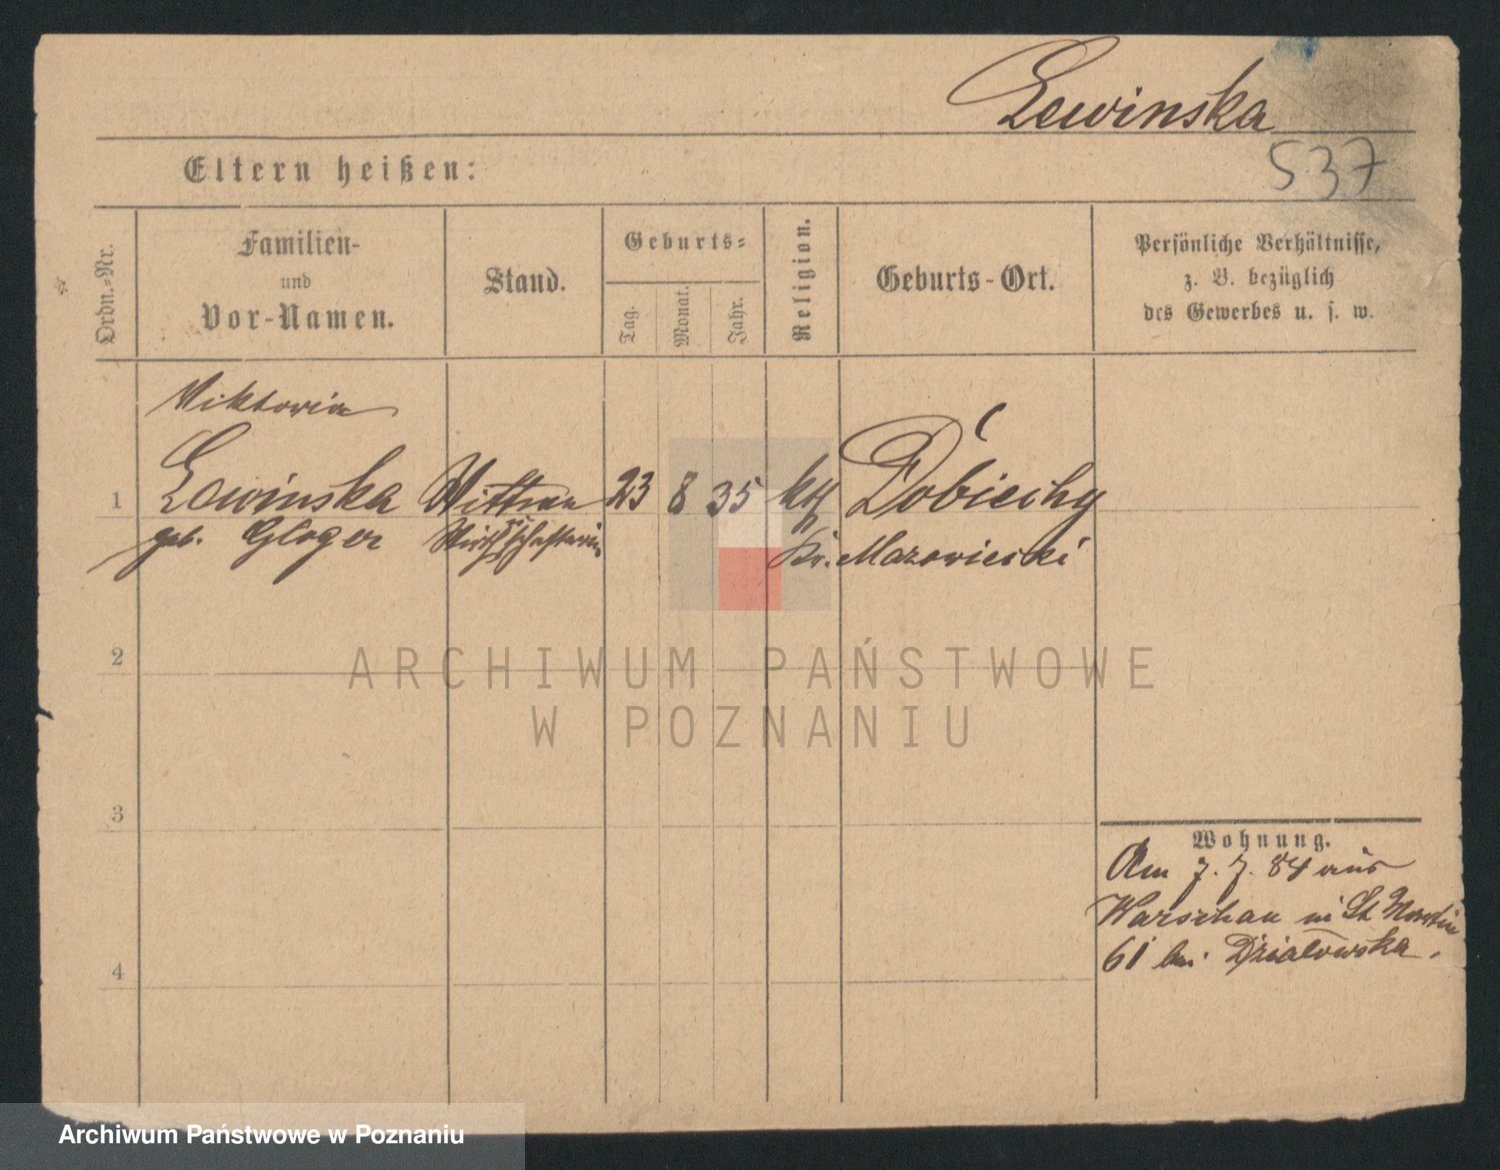 Lewinska
537
Eltern heißen:
Ordn.-Nr.
Familien-
und
Vor-Namen.
Stand.
Geburts-
Tag.
Monat.
Jahr.
Religion.
Geburts-Ort.
Persönliche Verhältnisse,
z. B. bezüglich
des Gewerbes u. s. w.
Viktoria
1 Lewinska Wittwe 23 8 35 kth Dobiechy
geb. Gloger Wirthschafterin Kr. Mazowiecki
2
3
4
Wohnung.
Am 7. 7. 84 aus
Warschau in St Martin
61 bei Działowska.
ARCHIWUM PAŃSTWOWE
W POZNANIU
Archiwum Państwowe w Poznaniu